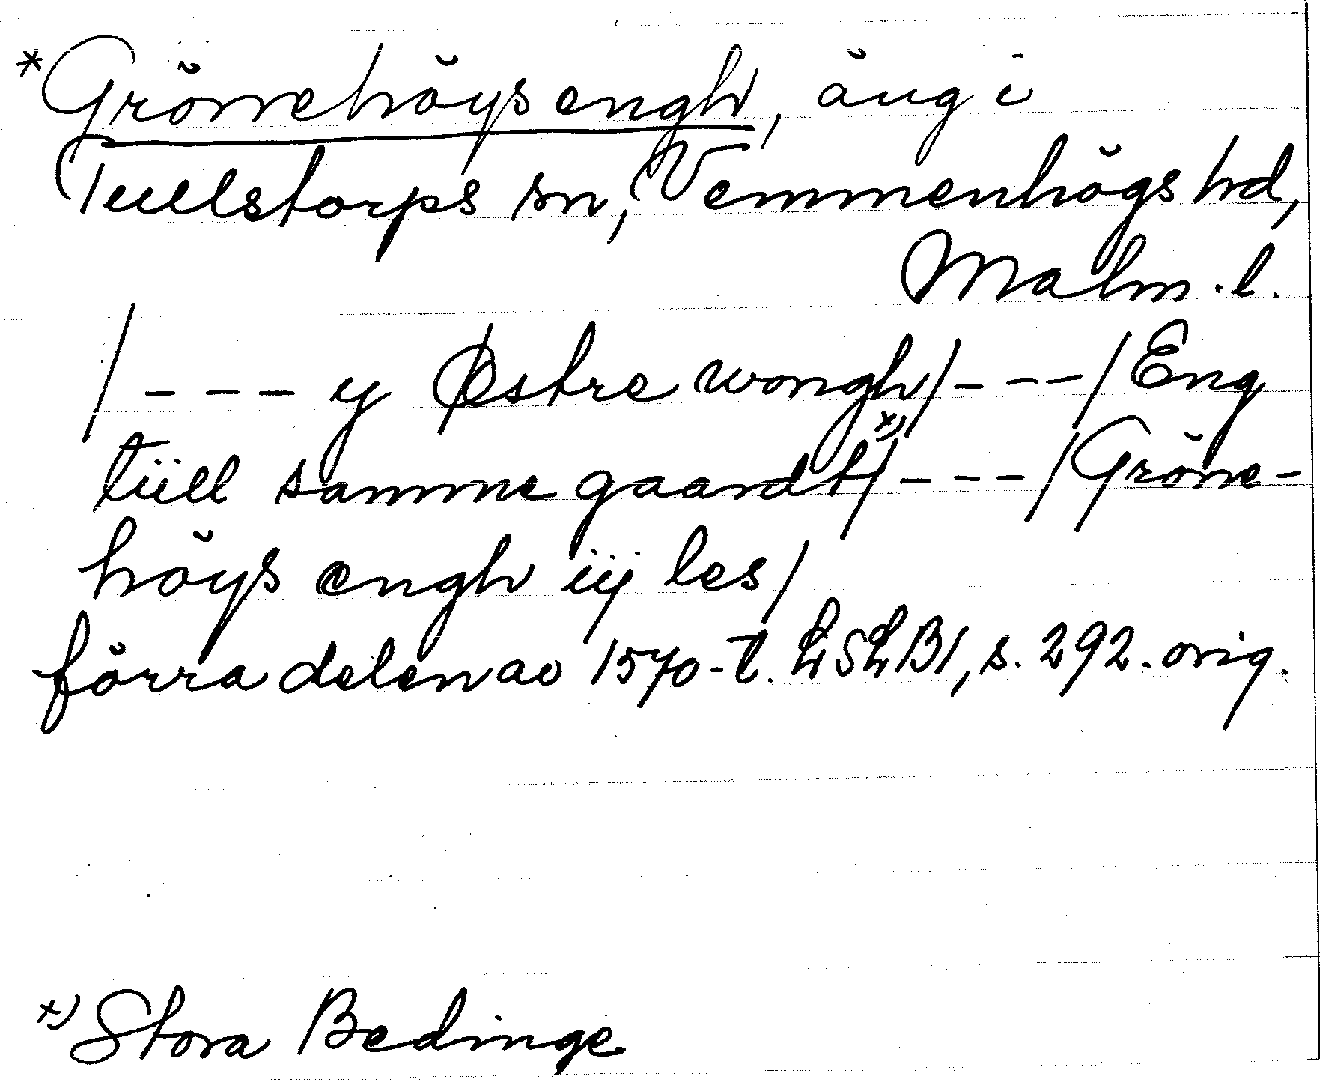 *Grönehöÿs engh, äng i
Tullstorps sn, Vemmenhögs hd,
Malm. l.
/ - - - y Østre wongh/ - - - /Eng
tiill samme gaardt x)/ - - - /Gröne-
höÿs engh iij les/
förra delen av 1570-t. LSLB1, s. 292. orig.
x) Stora Bedinge